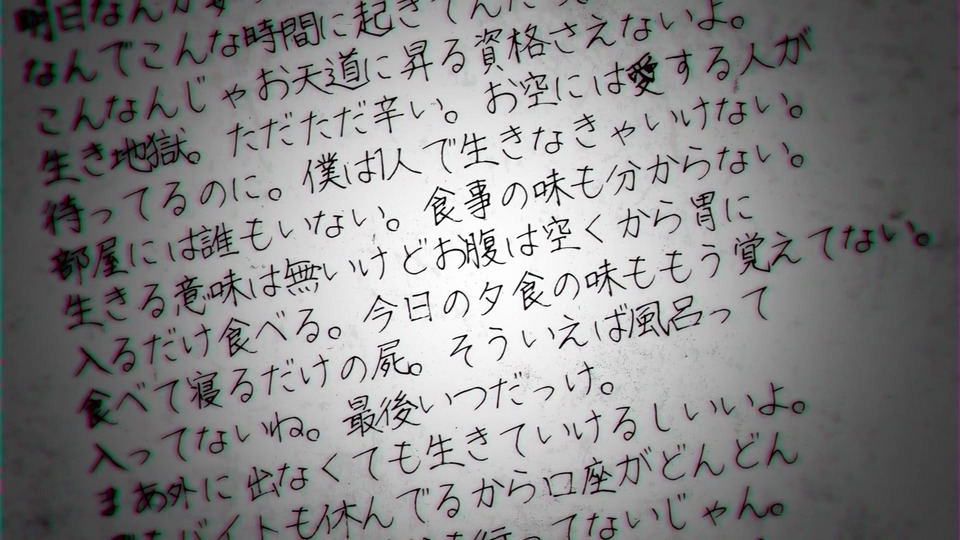 明日なんか
なんでこんな時間に起きてんだ
こんなんじゃお天道に昇る資格さえないよ。
生き地獄。ただただ辛い。お空には愛する人が
待ってるのに。僕は1人で生きなきゃいけない。
部屋には誰もいない。食事の味も分からない。
生きる意味は無いけどお腹は空くから胃に
入るだけ食べる。今日の夕食の味ももう覚えてない。
食べて寝るだけの屍。そういえば風呂って
入ってないね。最後いつだっけ。
まあ外に出なくても生きていけるしいいよ。
でもバイトも休んでるから口座がどんどん
行ってないじゃん。